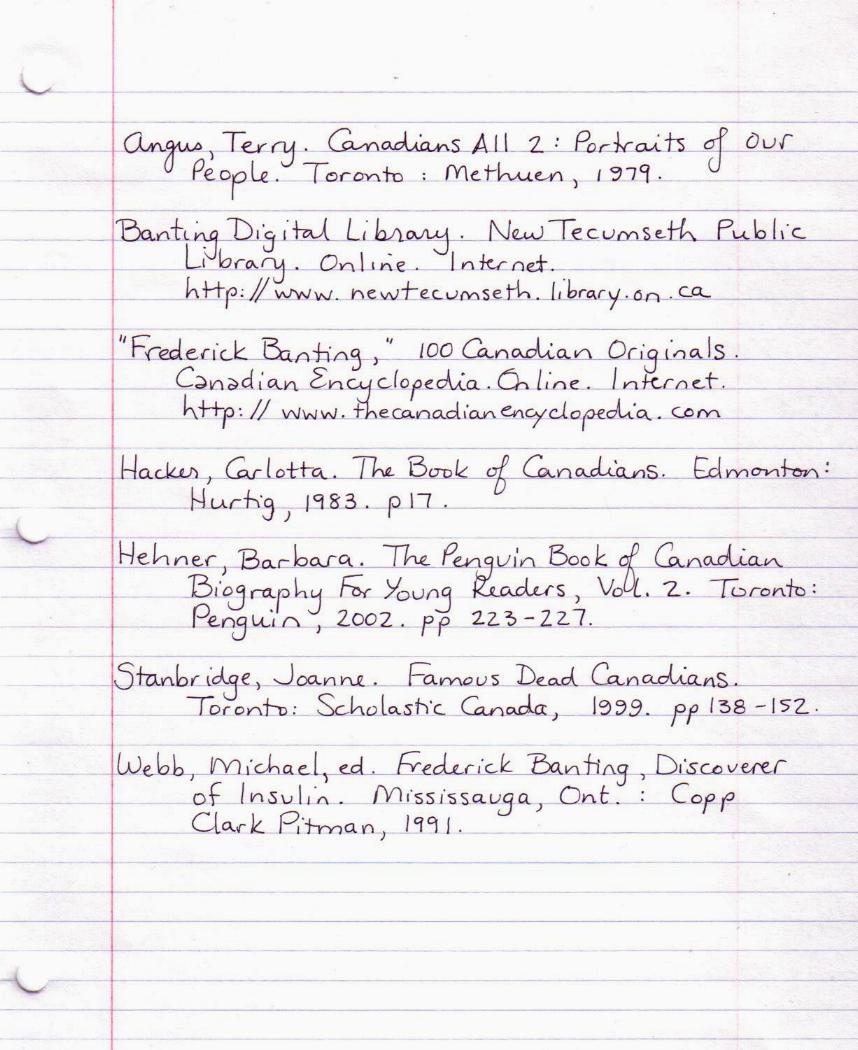 Angus, Terry. Canadians All 2 : Portraits of Our
People. Toronto : Methuen, 1979.
Banting Digital Library. New Tecumseth Public
Library. Online. Internet.
http://www.newtecumseth.library.on.ca
"Frederick Banting," 100 Canadian Originals.
Canadian Encyclopedia. Online. Internet.
http://www.thecanadianencyclopedia.com
Hacker, Carlotta. The Book of Canadians. Edmonton:
Hurtig, 1983. p17.
Hehner, Barbara. The Penguin Book of Canadian
Biography For Young Readers, Vol. 2. Toronto:
Penguin, 2002. pp 223-227.
Stanbridge, Joanne. Famous Dead Canadians.
Toronto: Scholastic Canada, 1999. pp 138-152.
Webb, Michael, ed. Frederick Banting, Discoverer
of Insulin. Mississauga, Ont. : Copp
Clark Pitman, 1991.